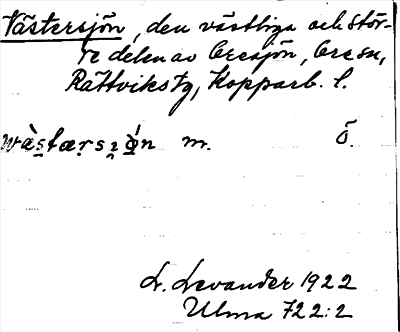 Västersjön, den västliga och stör-
re delen av Oresjön, Ore sn,
Rättviks tg, Kopparb. l.
wàstærsıɷ́n m. Ö.
L. Levander 1922
Ulma 722:2